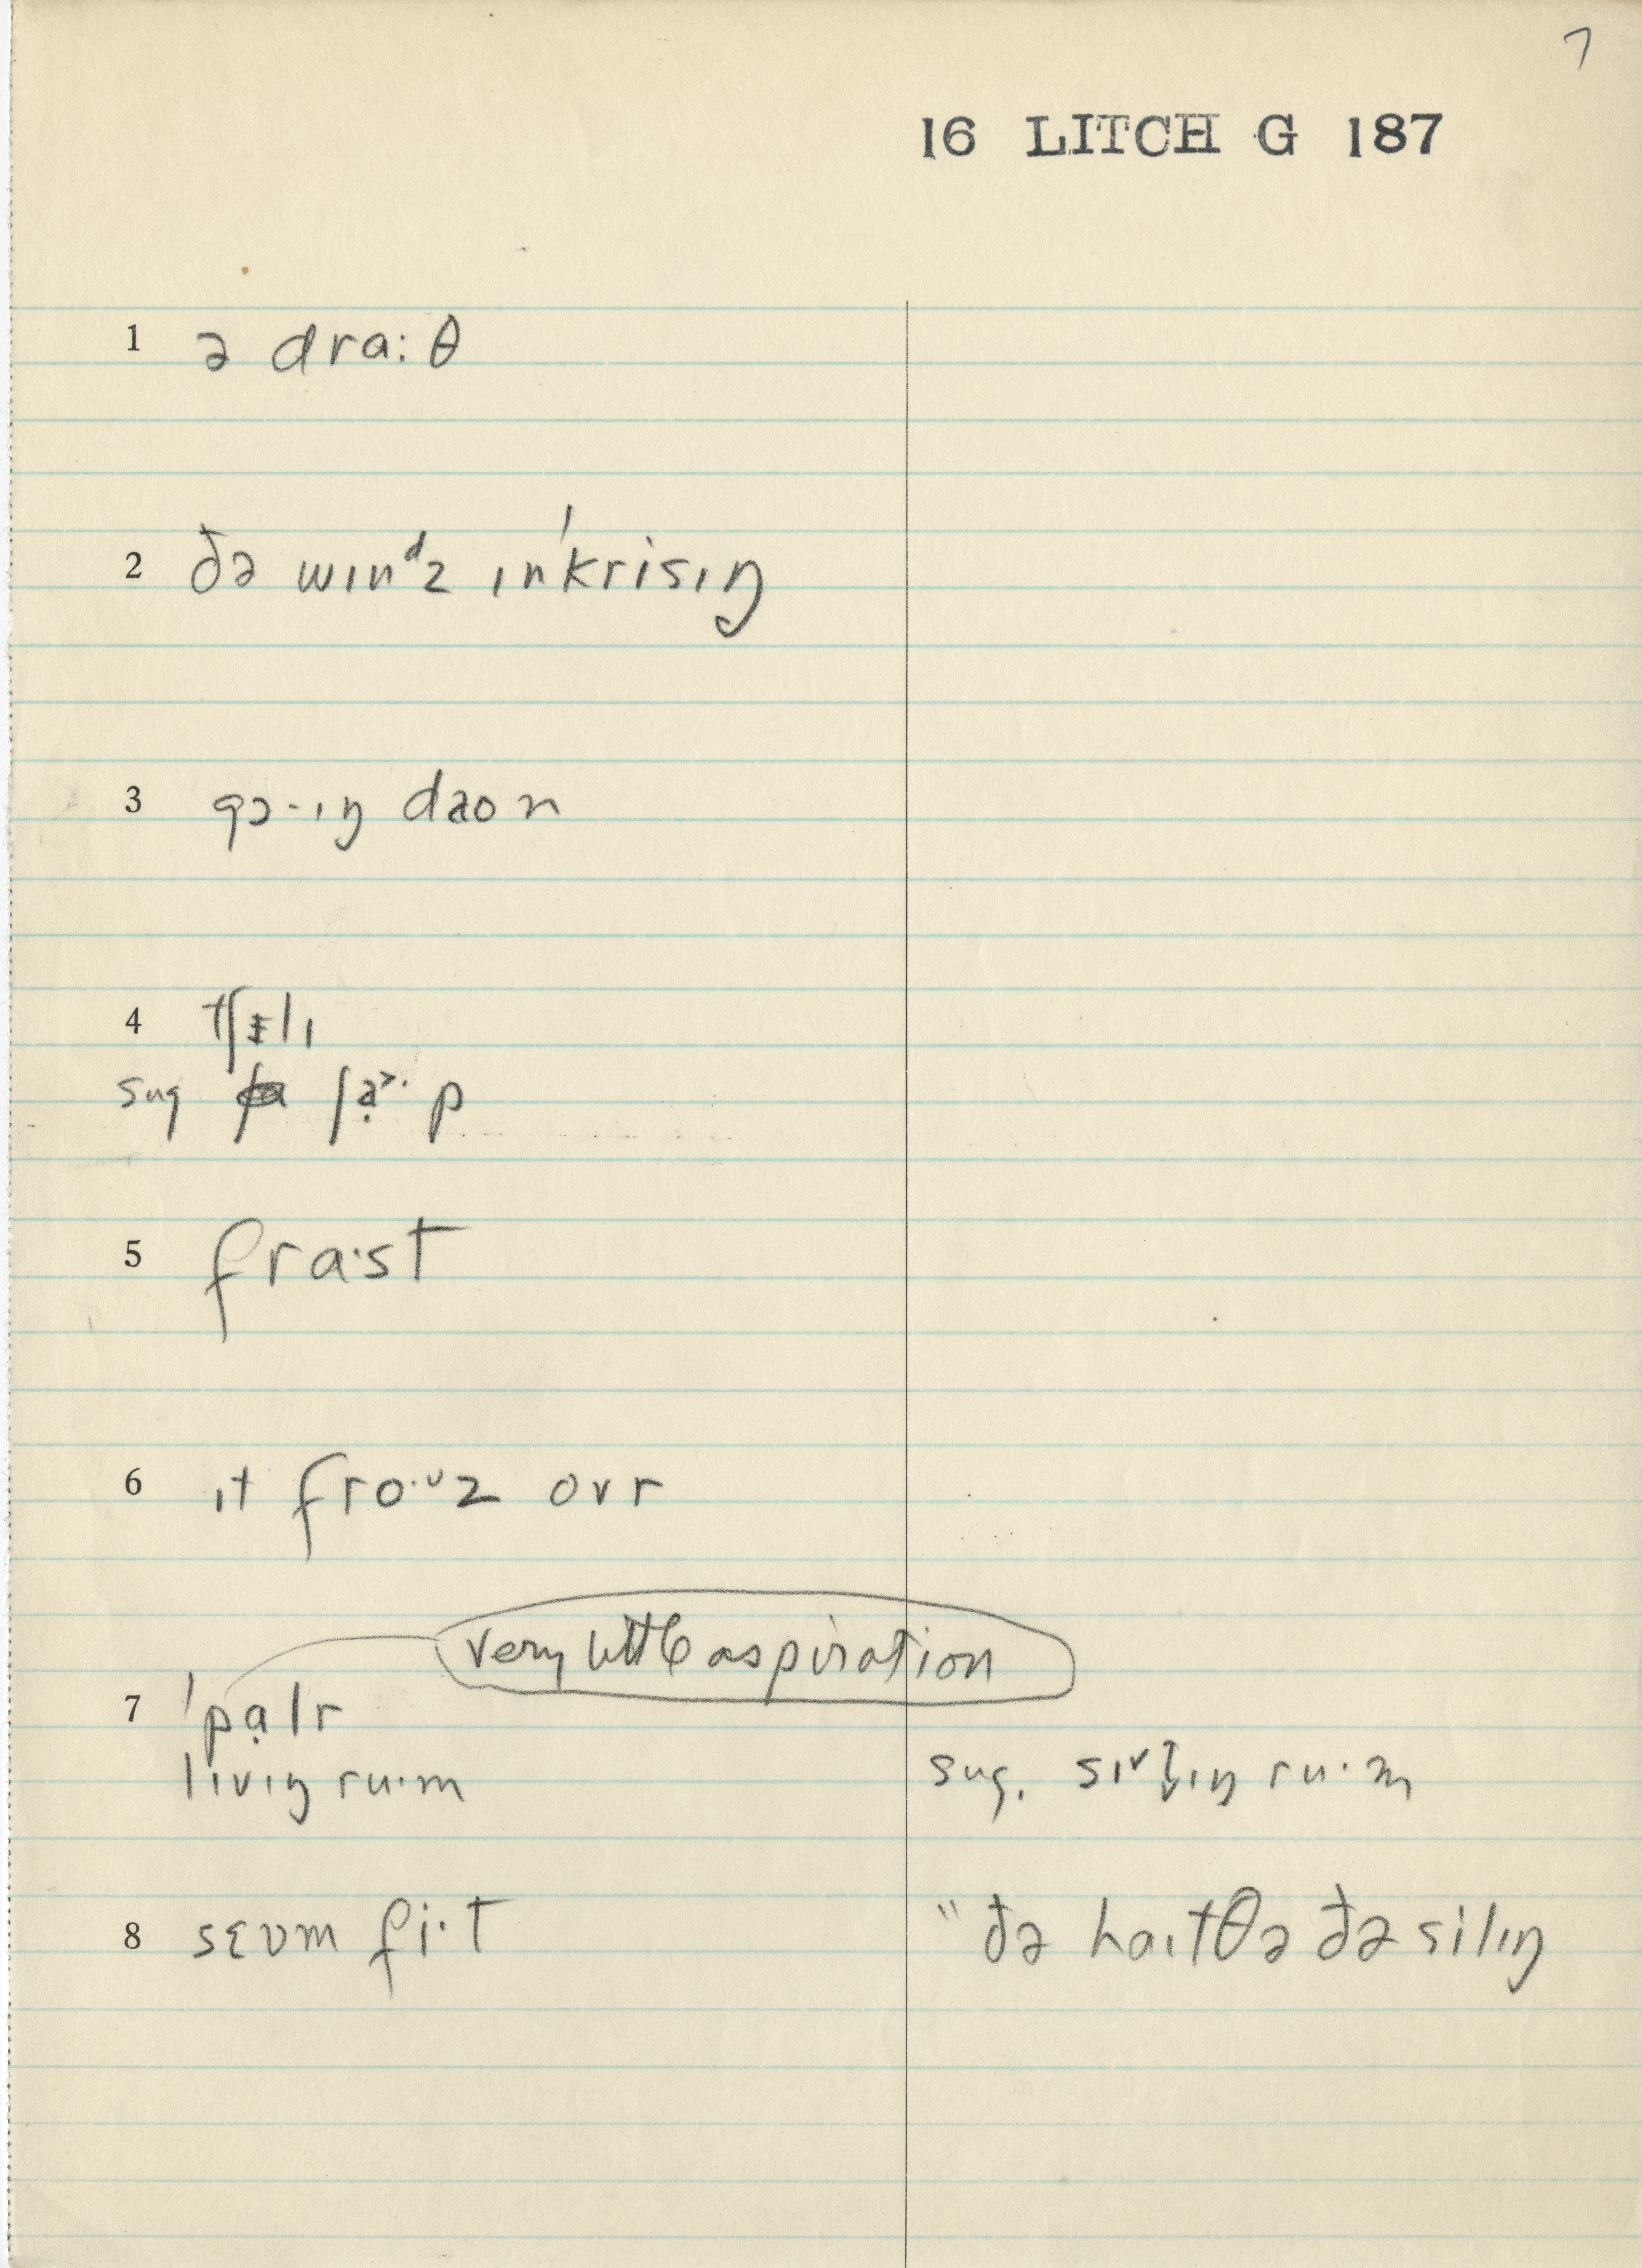 7
16 LITCH G 187
1 ə dra:θ
2 ðə wɪnᵈz ɪnˈkrisɪŋ
3 gɔ-ɪŋ daon
4 tʃɪlɪ
sug ʃạ˃· p
5 fra·st
6 ɪt fro·ᶷz ovr
very little aspiration
7 ˈpạlr
lɪvɪŋ ru·m
sug. sɪ˅t̬ɪŋ ru·m
8 sɛvm fi·t
" ðə haɪtθə ðə silɪŋ